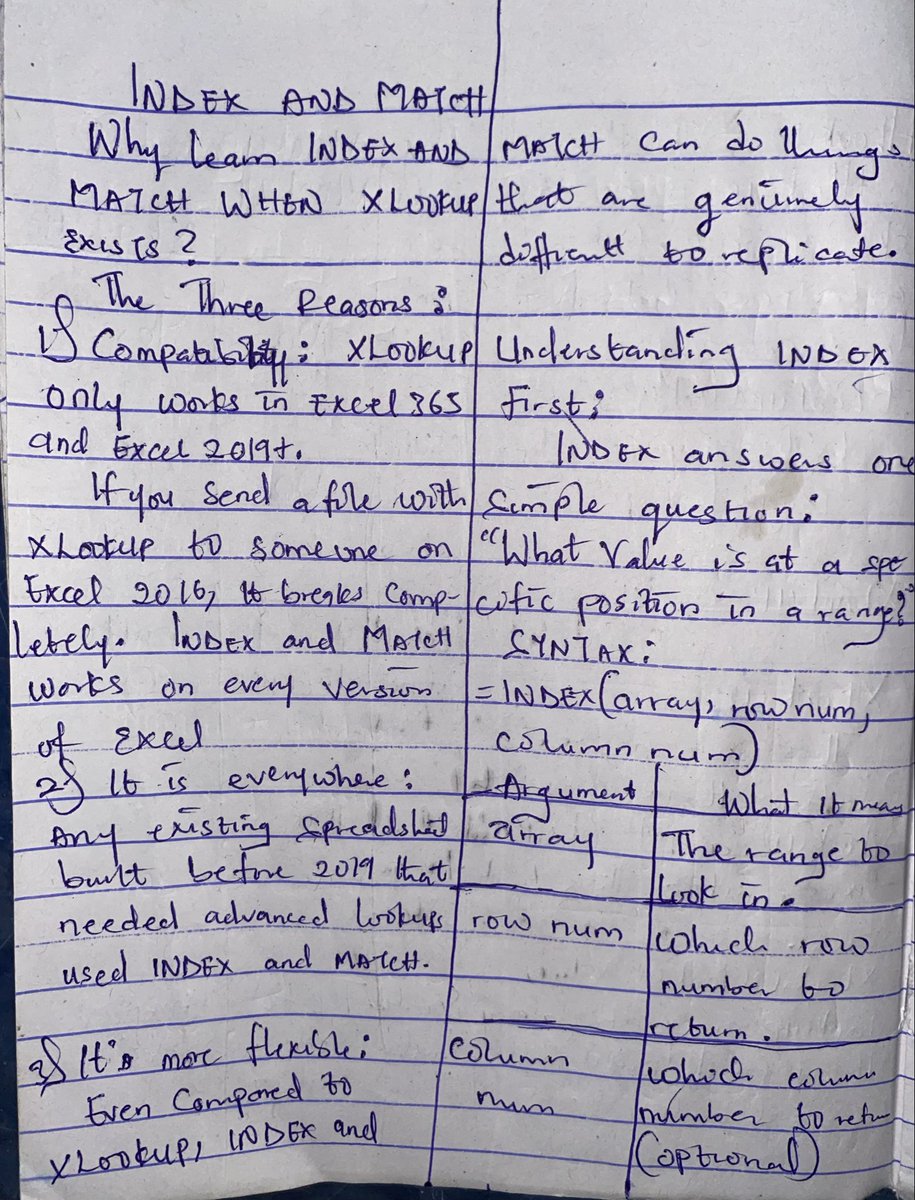 INDEX AND MATCH
Why learn INDEX AND
MATCH WHEN XLOOKUP
Exists?
The Three Reasons:
1) Compatability: XLOOKUP
only works in Excel 365
and Excel 2019+.
If you send a file with
XLOOKUP to someone on
Excel 2016, it breaks comp-
letely. INDEX and MATCH
works on every version
of Excel
2) It is everywhere:
Any existing spreadsheet
built before 2019 that
needed advanced lookups
used INDEX and MATCH.
3) It's more flexible:
Even Compared to
XLOOKUP, INDEX and
MATCH can do things
that are genuinely
difficult to replicate.
Understanding INDEX
first:
INDEX answers one
Simple question:
"What Value is at a spe
cific position in a range?"
SYNTAX:
=INDEX(array, row num,
column num)
Argument What it means
array The range to
look in.
row num which row
number to
return.
column which column
num number to return
(optional)